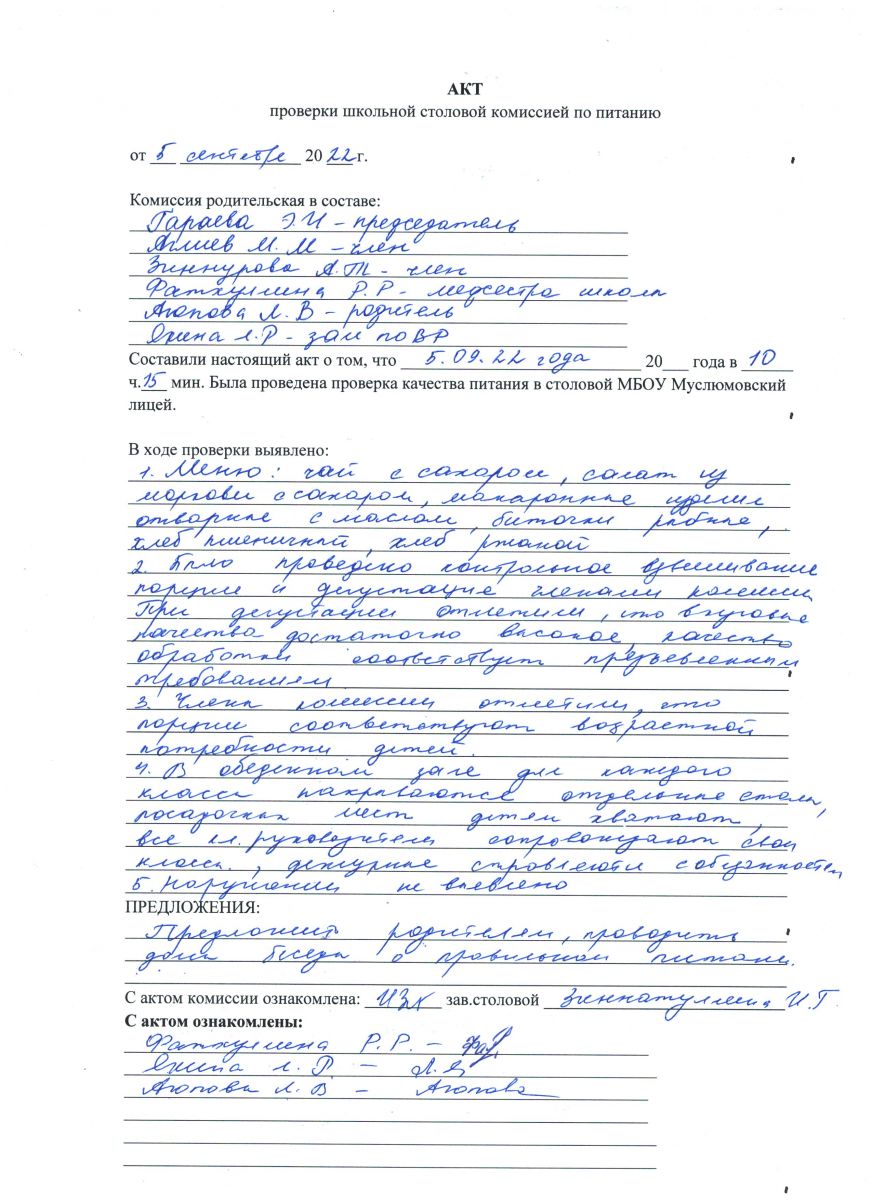 АКТ
проверки школьной столовой комиссией по питанию
от 5 сентября 2022 г.
Комиссия родительская в составе:
Гараева Э.И - председатель
М. М - член
Зиннурова А.Т - член
Фатхуллина Р.Р - медсестра школы
Аюпова Л. В - родитель
Якина Л.Р - зам по ВР
Составили настоящий акт о том, что 5.09.22 года 20___ года в 10
ч.15 мин. Была проведена проверка качества питания в столовой МБОУ Муслюмовский
лицей.
В ходе проверки выявлено:
1. Меню: чай с сахаром, салат из
моркови с сахаром, макаронные изделия
отварные с маслом, биточки рыбные,
хлеб пшеничный, хлеб ржаной
2. Было проведено контрольное взвешивание
порции и дегустация членами комиссии
При дегустации отметили, что вкусовые
качества достаточно высокое, качество
обработки соответствует предъявленным
требованиям
3. Члены комиссии отметили, что
порции соответствуют возрастной
потребности детей.
4. В обеденном зале для каждого
класса накрываются отдельные столы,
посадочных мест детям хватают,
все кл. руководители сопровождают свои
классы, дежурные справляются с обязанностями
5. Нарушений не выявлено
ПРЕДЛОЖЕНИЯ:
Предложить родителям, проводить
дома беседы о правильном питании.
С актом комиссии ознакомлена: зав.столовой Зиннатуллина И.Г
С актом ознакомлены:
Фатхуллина Р.Р. -
Якина Л. Р. -
Аюпова Л. В - Аюпова